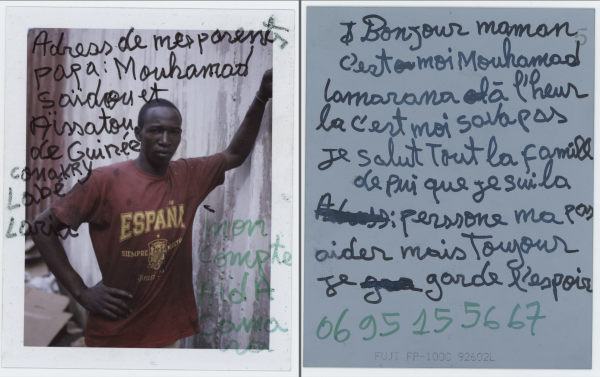 Adress de mes parents
papa: Mouhamad
Saidou et
Aïssatou
de Guinée
conakry
Labé
Laria
ESPAÑA
SIEMPRE
mon
Compte
Hida
Cama
ra
$ Bonjour maman
c'est moi Mouhamad
lamarana à l'heur
la c'est moi sava pas
je salut Tout la famille
depui que je sui la
: perssone ma pas
aider mais Toujour
je garde l'espoir
06 95 15 56 67
FUJI FP-100C 92602L
5